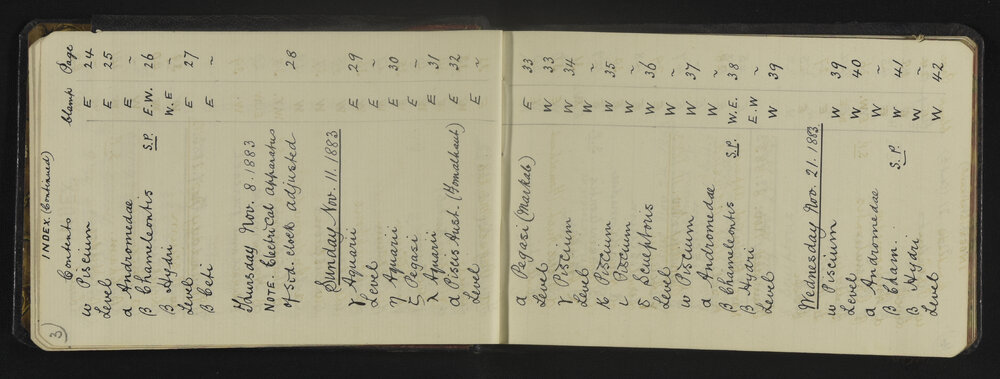 3
INDEX. (Continued)
Contents Clamp Page
w Piscium E 24
Level E 25
α Andromedae E ~
β Chameleontis S.P. E.W. 26
β Hydri W.E ~
Level E 27
β Ceti E ~
Thursday Nov. 8. 1883
NOTE Electrical apparatus 28
of Sid. clock adjusted
Sunday Nov. 11. 1883
γ Aquarii E 29
Level E ~
η Aquarii E 30
ξ Pegasi E ~
λ Aquarii E 31
α Piscis Aust. (Fomalhaut) E 32
Level E ~
α Pegasi (Markab) E 33
Level W 33
γ Piscium W 34
Level W ~
κ Piscium W 35
ι Piscium W ~
δ Sculptoris W 36
Level W ~
w Piscium W 37
α Andromedae W ~
β Chameleontis S.P. W.E. 38
β Hydri E.W ~
Level W 39
Wednesday Nov. 21. 1883
w Piscium W 39
Level W 40
α Andromedae W ~
β Cham. S.P. W 41
β Hydri W ~
Level W 42